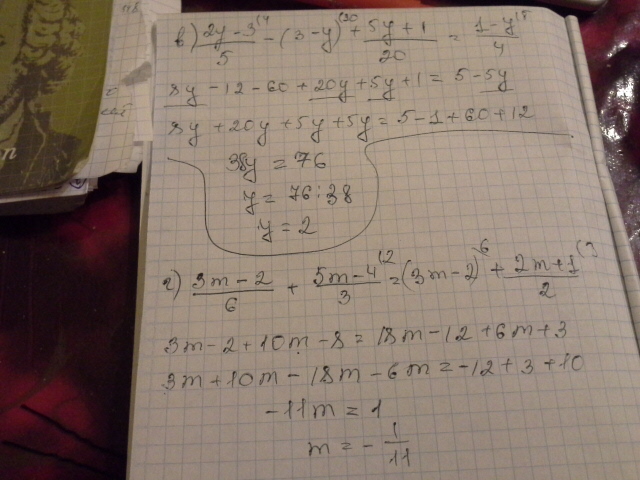 в) (2y-3)/5 (4 - (3-y) (20 + (5y+1)/20 = (1-y)/4 (5
8y - 12 - 60 + 20y + 5y + 1 = 5 - 5y
8y + 20y + 5y + 5y = 5 - 1 + 60 + 12
38y = 76
y = 76 : 38
y = 2
г) (3m-2)/6 + (5m-4)/3 (2 = (3m-2) (6 + (2m+1)/2 (3
3m - 2 + 10m - 8 = 18m - 12 + 6m + 3
3m + 10m - 18m - 6m = -12 + 3 + 10
-11m = 1
m = - 1/11